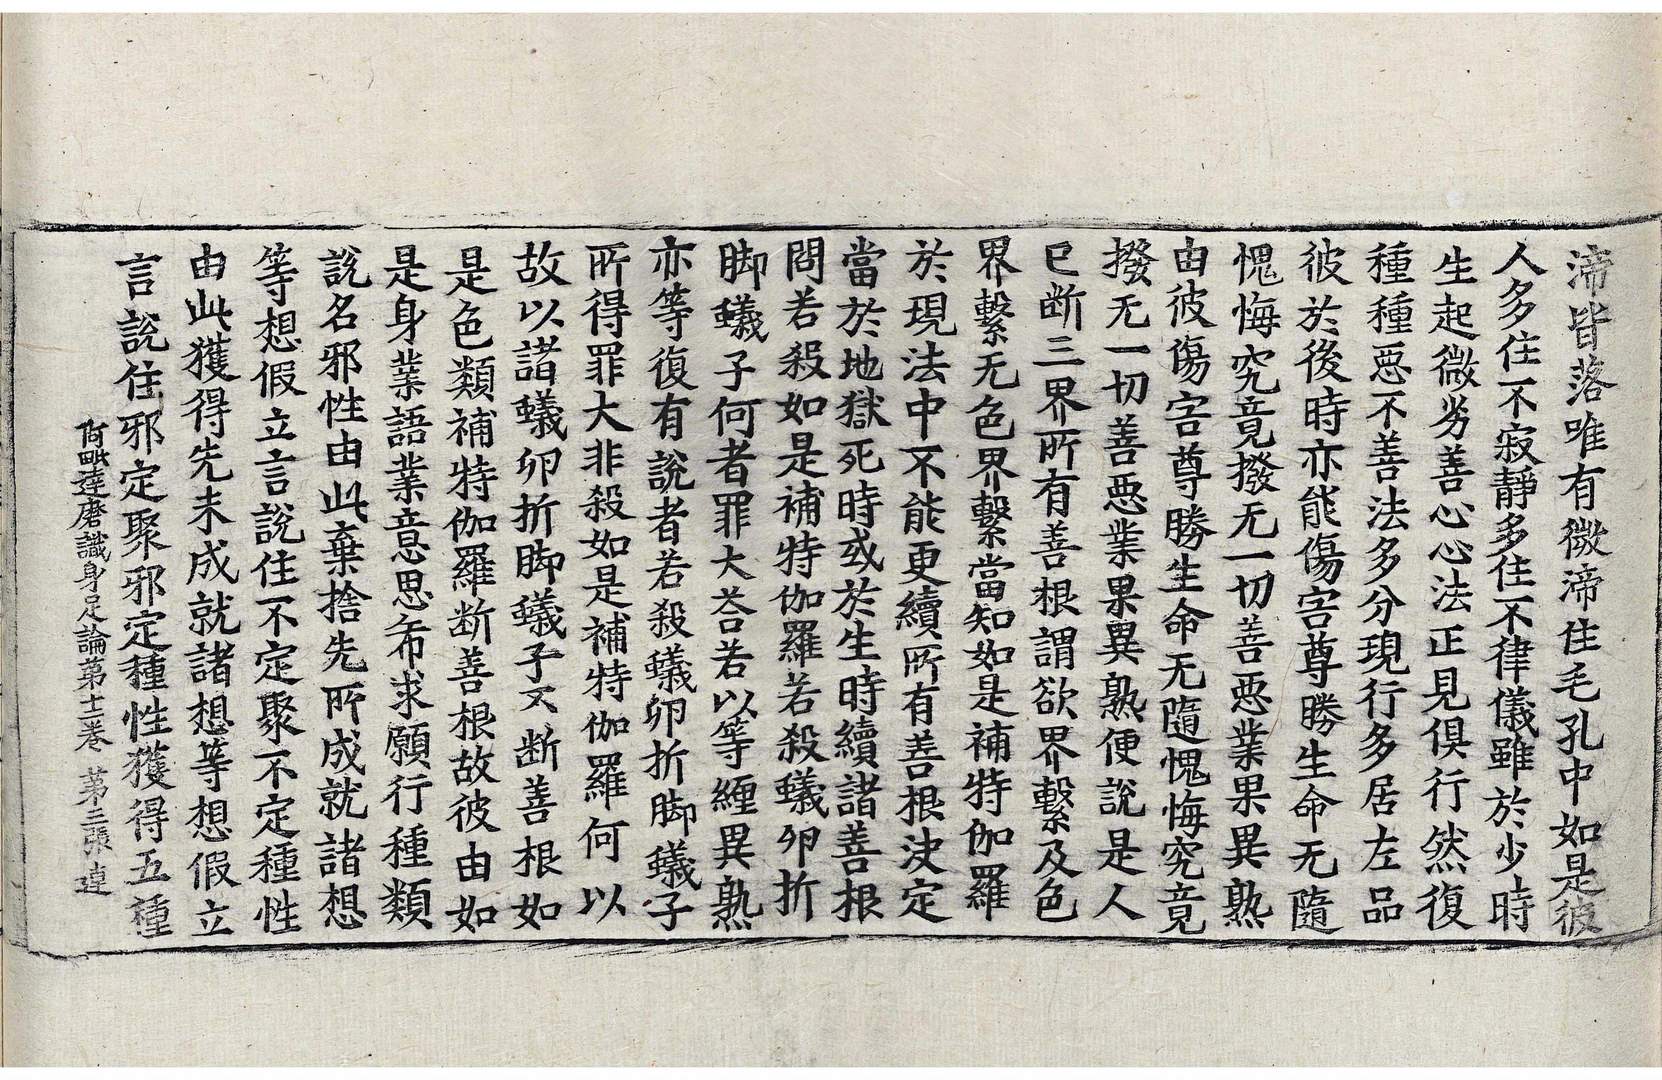 渧皆落唯有微渧住毛孔中如是彼
人多住不寂靜多住不律儀雖於少時
生起微劣善心心法正見俱行然復
種種惡不善法多分現行多居左品
彼於後時亦能傷害尊勝生命无隨
愧悔究竟撥无一切善惡業果異熟
由彼傷害尊勝生命无隨愧悔究竟
撥无一切善惡業果異熟便說是人
已断三界所有善根謂欲界繫及色
界繫无色界繫當知如是補特伽羅
於現法中不能更續所有善根決定
當於地獄死時或於生時續諸善根
問若殺如是補特伽羅若殺蟻卵折
脚蟻子何者罪大荅若以等纏異熟
亦等復有說者若殺蟻卵折脚蟻子
所得罪大非殺如是補特伽羅何以
故以諸蟻卵折脚蟻子不断善根如
是色類補特伽羅断善根故彼由如
是身業語業意思希求願行種類
說名邪性由此棄捨先所成就諸想
等想假立言說住不定聚不定種性
由此獲得先未成就諸想等想假立
言說住邪定聚邪定種性獲得五種
阿毗達磨識身足論第十二卷 第三張